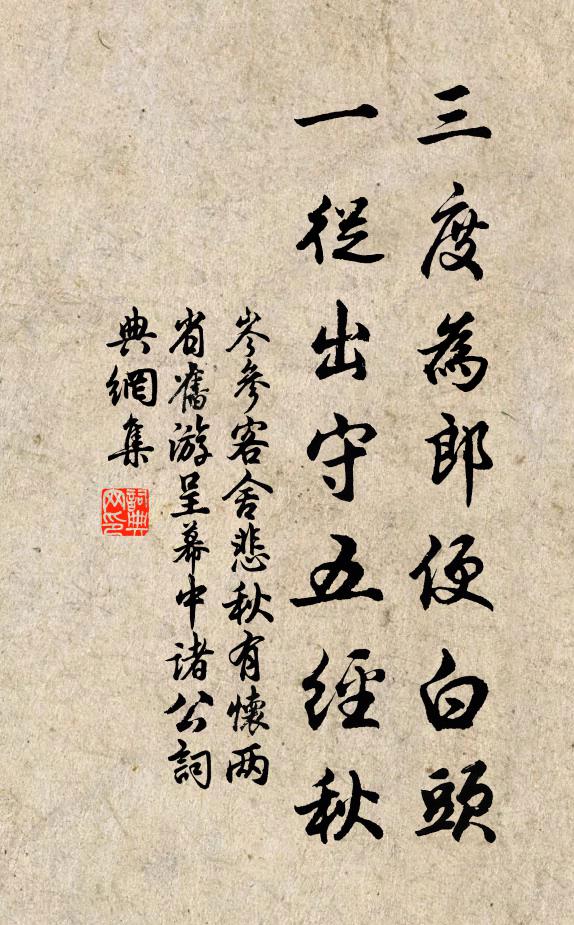 三度為郎便白頭
一從出守五經秋
岑參客舍悲秋有懷兩
省舊游呈幕中諸公詞
典網集
詞典網印